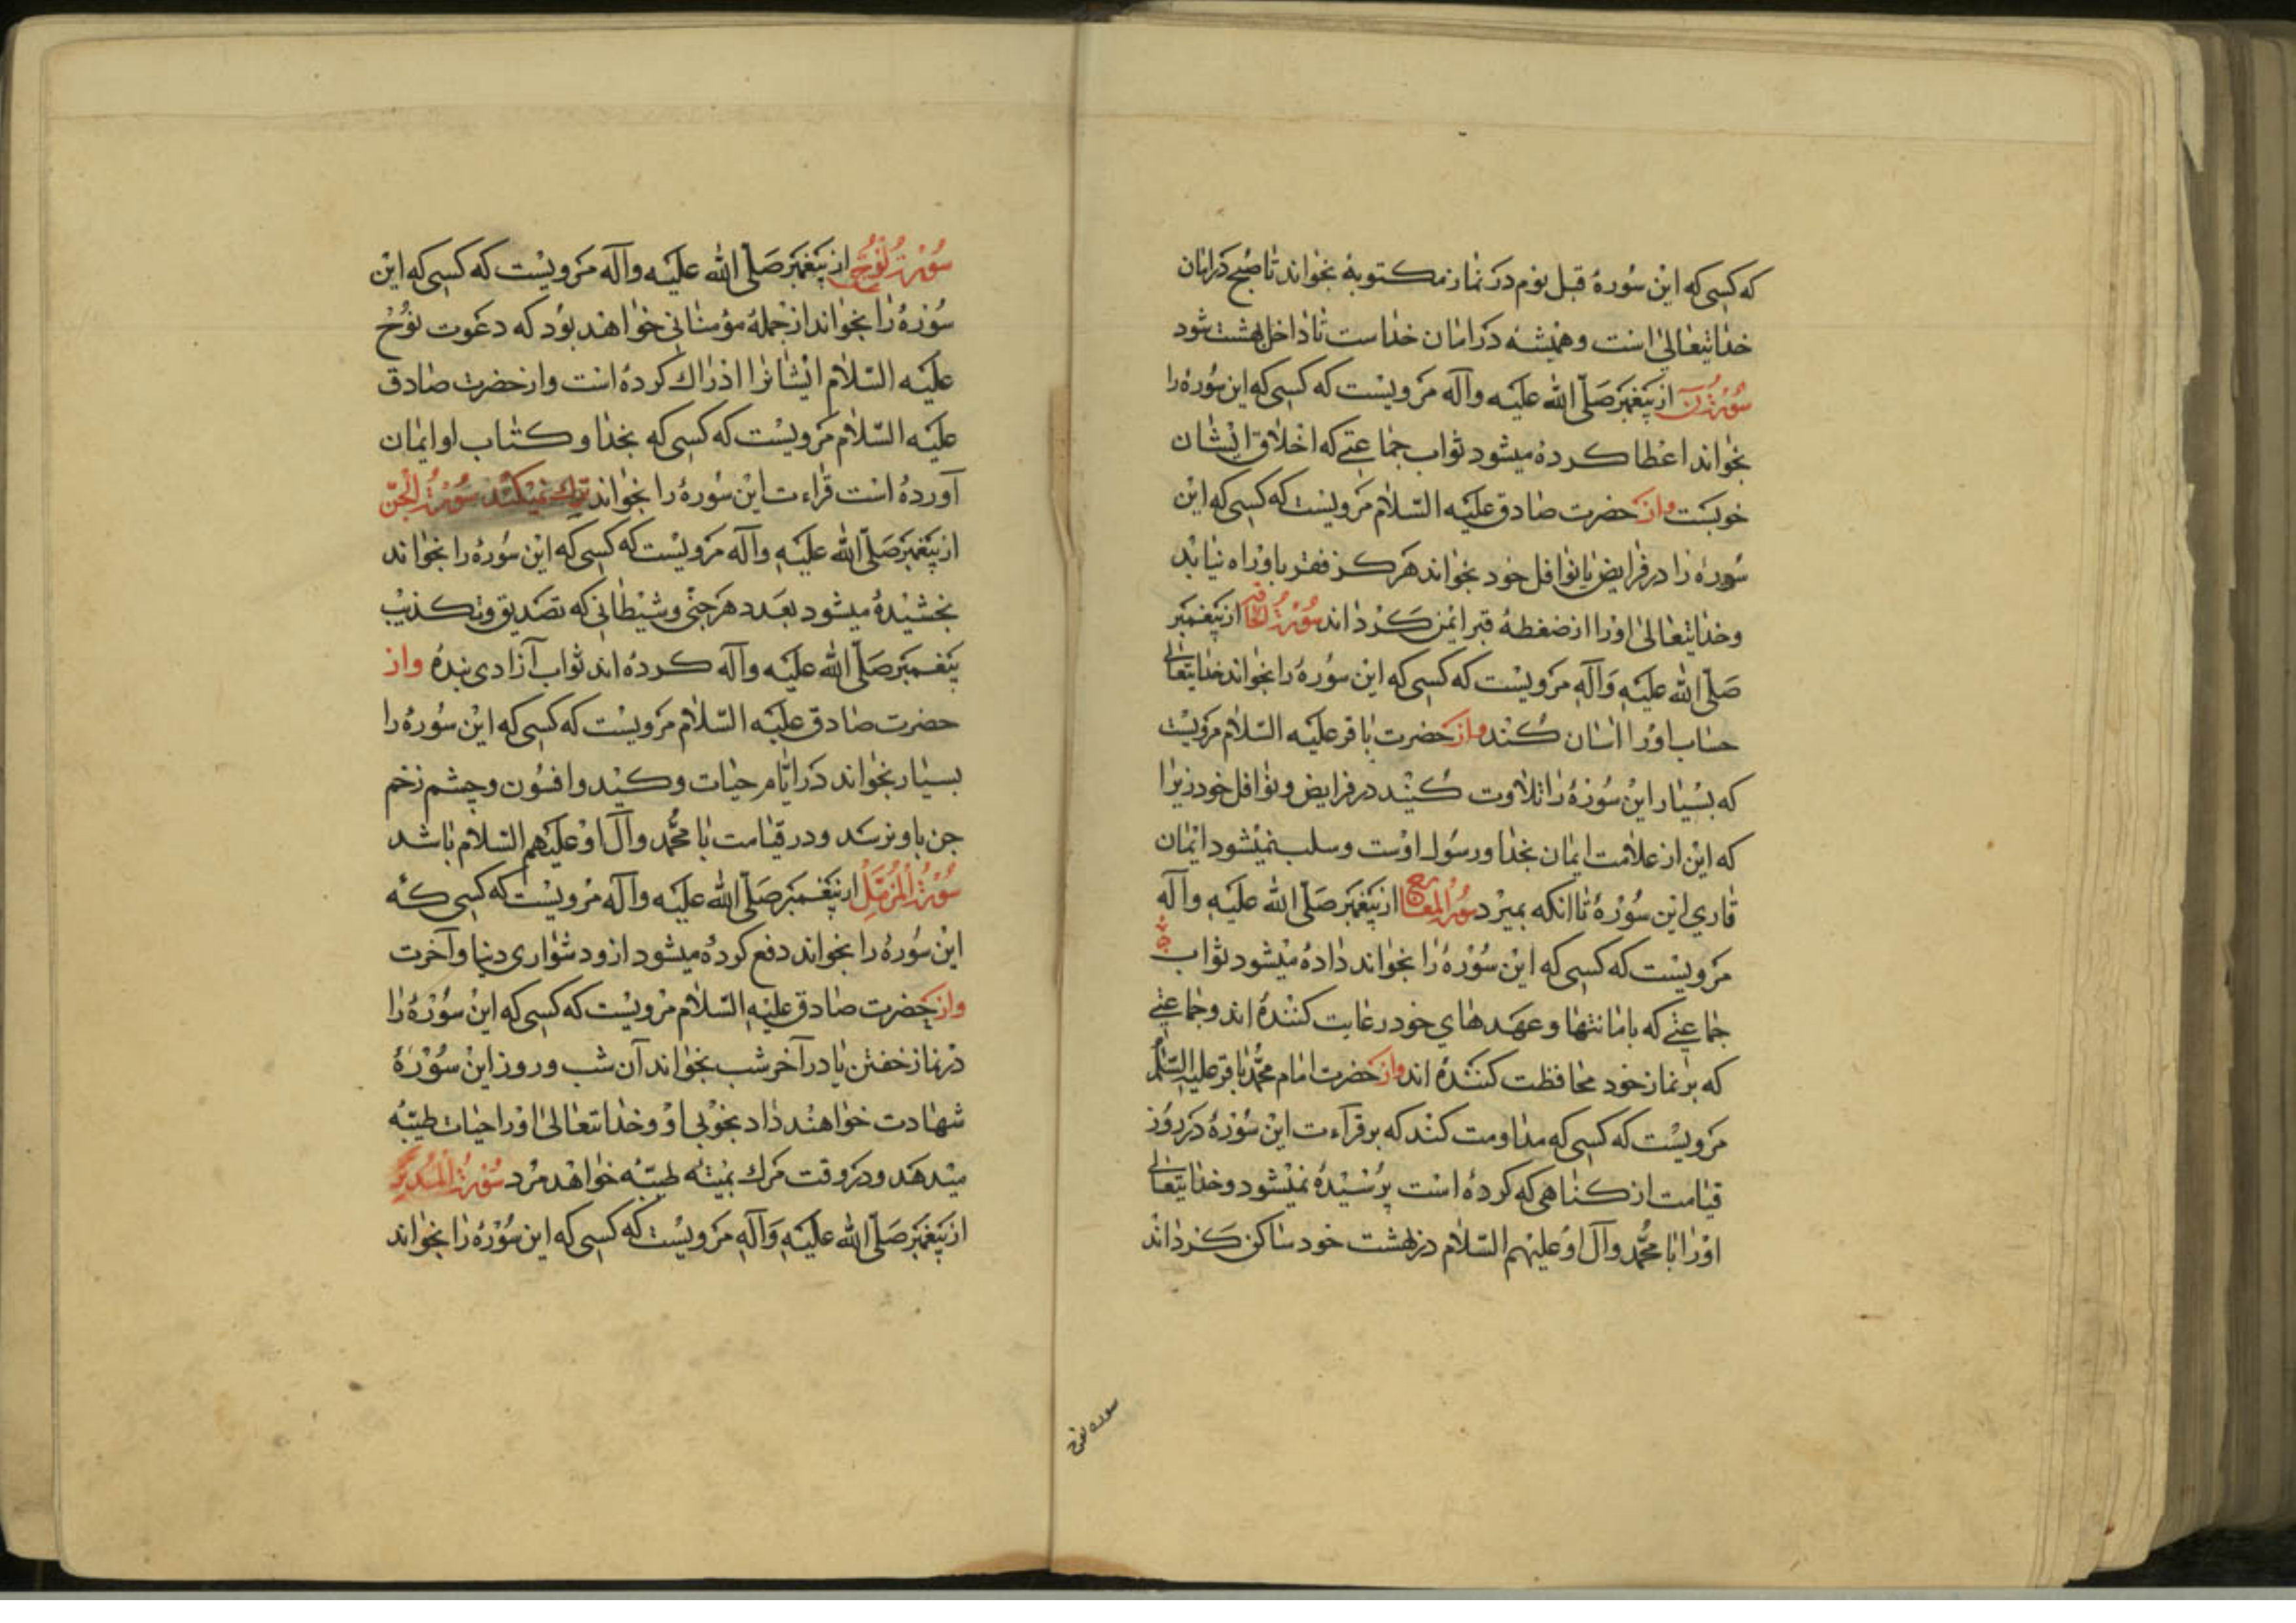 که کسی که این سوره قبل نوم در نماز مکتوبه بخواند تا صبح در امان
خدایتعالی است و همیشه در امان خداست تا داخل بهشت شود
سورة ن از پیغمبر صلی الله علیه وآله مرویست که کسی که این سوره را
بخواند اعطا کرده میشود ثواب جماعتی که اخلاق ایشان
خوبست و از حضرت صادق علیه السلام مرویست که کسی که این
سوره را در فرایض یا نوافل خود بخواند هرکز فقر باو راه نیابد
وخدایتعالی اورا از ضغطه قبر ایمن کرداند سورة الحاقه از پیغمبر
صلی الله علیه وآله مرویست که کسی که این سوره را بخواند خدایتعالی
حساب اورا اسان کند و از حضرت باقر علیه السلام مرویست
که بسیار این سوره را تلاوت کنید در فرایض و نوافل خود زیرا
که این از علامت ایمان بخدا ورسول اوست وسلب نمیشود ایمان
قاری این سوره تا انکه بمیرد سورة المعارج از پیغمبر صلی الله علیه وآله
مرویست که کسی که این سوره را بخواند داده میشود ثواب
جماعتی که بامانتها وعهدهای خود رعایت کننده اند وجماعتی
که بر نماز خود محافظت کننده اند و از حضرت امام محمد باقر علیه السلم
مرویست که کسی که مداومت کند که بر قراءت این سوره در روز
قیامت از کناهی که کرده است پرسیده نمیشود وخدایتعالی
اورا با محمد وآل او علیهم السلام در بهشت خود ساکن کرداند
سوره نوح
سورة نوح از پیغمبر صلی الله علیه وآله مرویست که کسی که این
سوره را بخواند از جمله مؤمنانی خواهند بود که دعوت نوح
علیه السلام ایشانرا ادراک کرده است واز حضرت صادق
علیه السلام مرویست که کسی که بخدا و کتاب او ایمان
آورده است قراءت این سوره را بخواند ترک نمیکند سورة الجن
از پیغمبر صلی الله علیه وآله مرویست که کسی که این سوره را بخواند
بخشیده میشود بعدد هر جنی وشیطانی که تصدیق وتکذیب
پیغمبر صلی الله علیه وآله کرده اند ثواب آزادی بنده واز
حضرت صادق علیه السلام مرویست که کسی که این سوره را
بسیار بخواند در ایام حیات وکید وافسون وچشم زخم
جن باو نرسد ودر قیامت با محمد وآل او علیهم السلام باشد
سورة المزمل از پیغمبر صلی الله علیه وآله مرویست که کسی که
این سوره را بخواند دفع کرده میشود ازو دشواری دنیا وآخرت
واز حضرت صادق علیه السلام مرویست که کسی که این سوره را
در نماز خفتن یا در آخر شب بخواند آن شب وروز این سوره
شهادت خواهند داد بخوبی او وخدایتعالی اورا حیات طیبه
میدهد ودر وقت مرک بمیته طیبه خواهد مرد سورة المدثر
از پیغمبر صلی الله علیه وآله مرویست که کسی که این سوره را بخواند